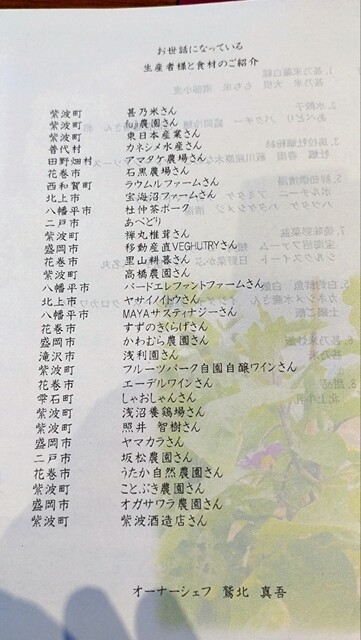 お世話になっている
生産者様と食材のご紹介
紫波町 甚乃米さん
紫波町 fuji農園さん
紫波町 東日本産業さん
普代村 カネシメ水産さん
田野畑村 アマタケ農場さん
花巻市 石黒農場さん
西和賀町 ラウムルファームさん
北上市 宝海沼ファームさん
八幡平市 杜仲茶ポーク
二戸市 あべどり
紫波町 禅丸椎茸さん
盛岡市 移動産直VEGHUTRYさん
花巻市 里山耕暮さん
紫波町 高橋農園さん
八幡平市 バードエレファントファームさん
北上市 ヤサイノイトウさん
八幡平市 MAYAサスティナジーさん
花巻市 すずのきくらげさん
盛岡市 かわむら農園さん
滝沢市 浅利園さん
紫波町 フルーツパーク自園自醸ワインさん
花巻市 エーデルワインさん
雫石町 しゃおしゃんさん
紫波町 浅沼養鶏場さん
紫波町 照井 智樹さん
盛岡市 ヤマカラさん
二戸市 坂松農園さん
花巻市 うたか自然農園さん
紫波町 ことぶき農園さん
盛岡市 オガサワラ農園さん
紫波町 紫波酒造店さん
オーナーシェフ 鷲北 真吾